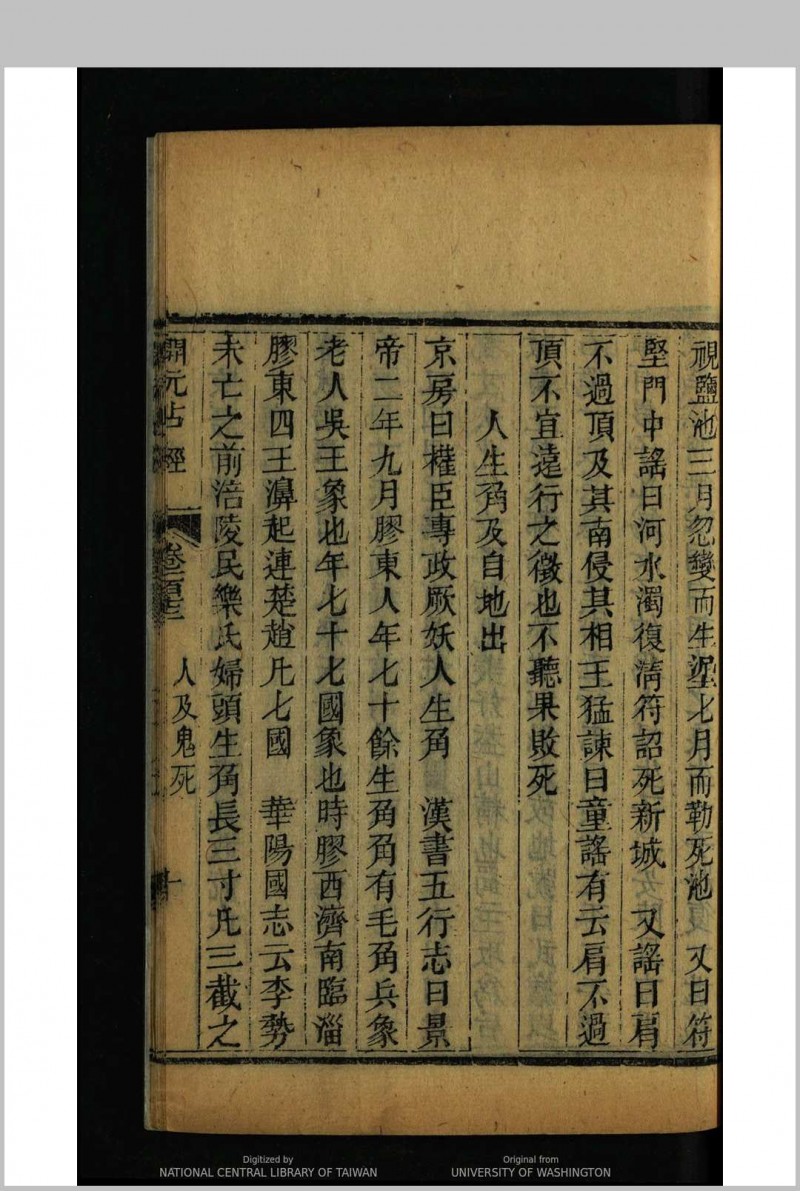 視鹽池三月忽變而生塭七月而勒死池　又曰符
堅門中謠曰河水濁復淸符詔死新城　又謠曰肩
不過頂及其南侵其相王猛諫曰童謠有云肩不過
頂不宜遠行之徵也不聽果敗死
人生角及自地出
京房曰權臣專政厥妖人生角　漢書五行志曰景
帝二年九月膠東人年七十餘生角角有毛角兵象
老人吳王象也年七十七國象也時膠西濟南臨淄
膠東四王濞起連楚趙凡七國　華陽國志云李勢
未亡之前涪陵民樂氏婦頭生角長三寸凡三截之
開元占經
人及鬼死
十
Digitized by
NATIONAL CENTRAL LIBRARY OF TAIWAN
Original from
UNIVERSITY OF WASHINGTON